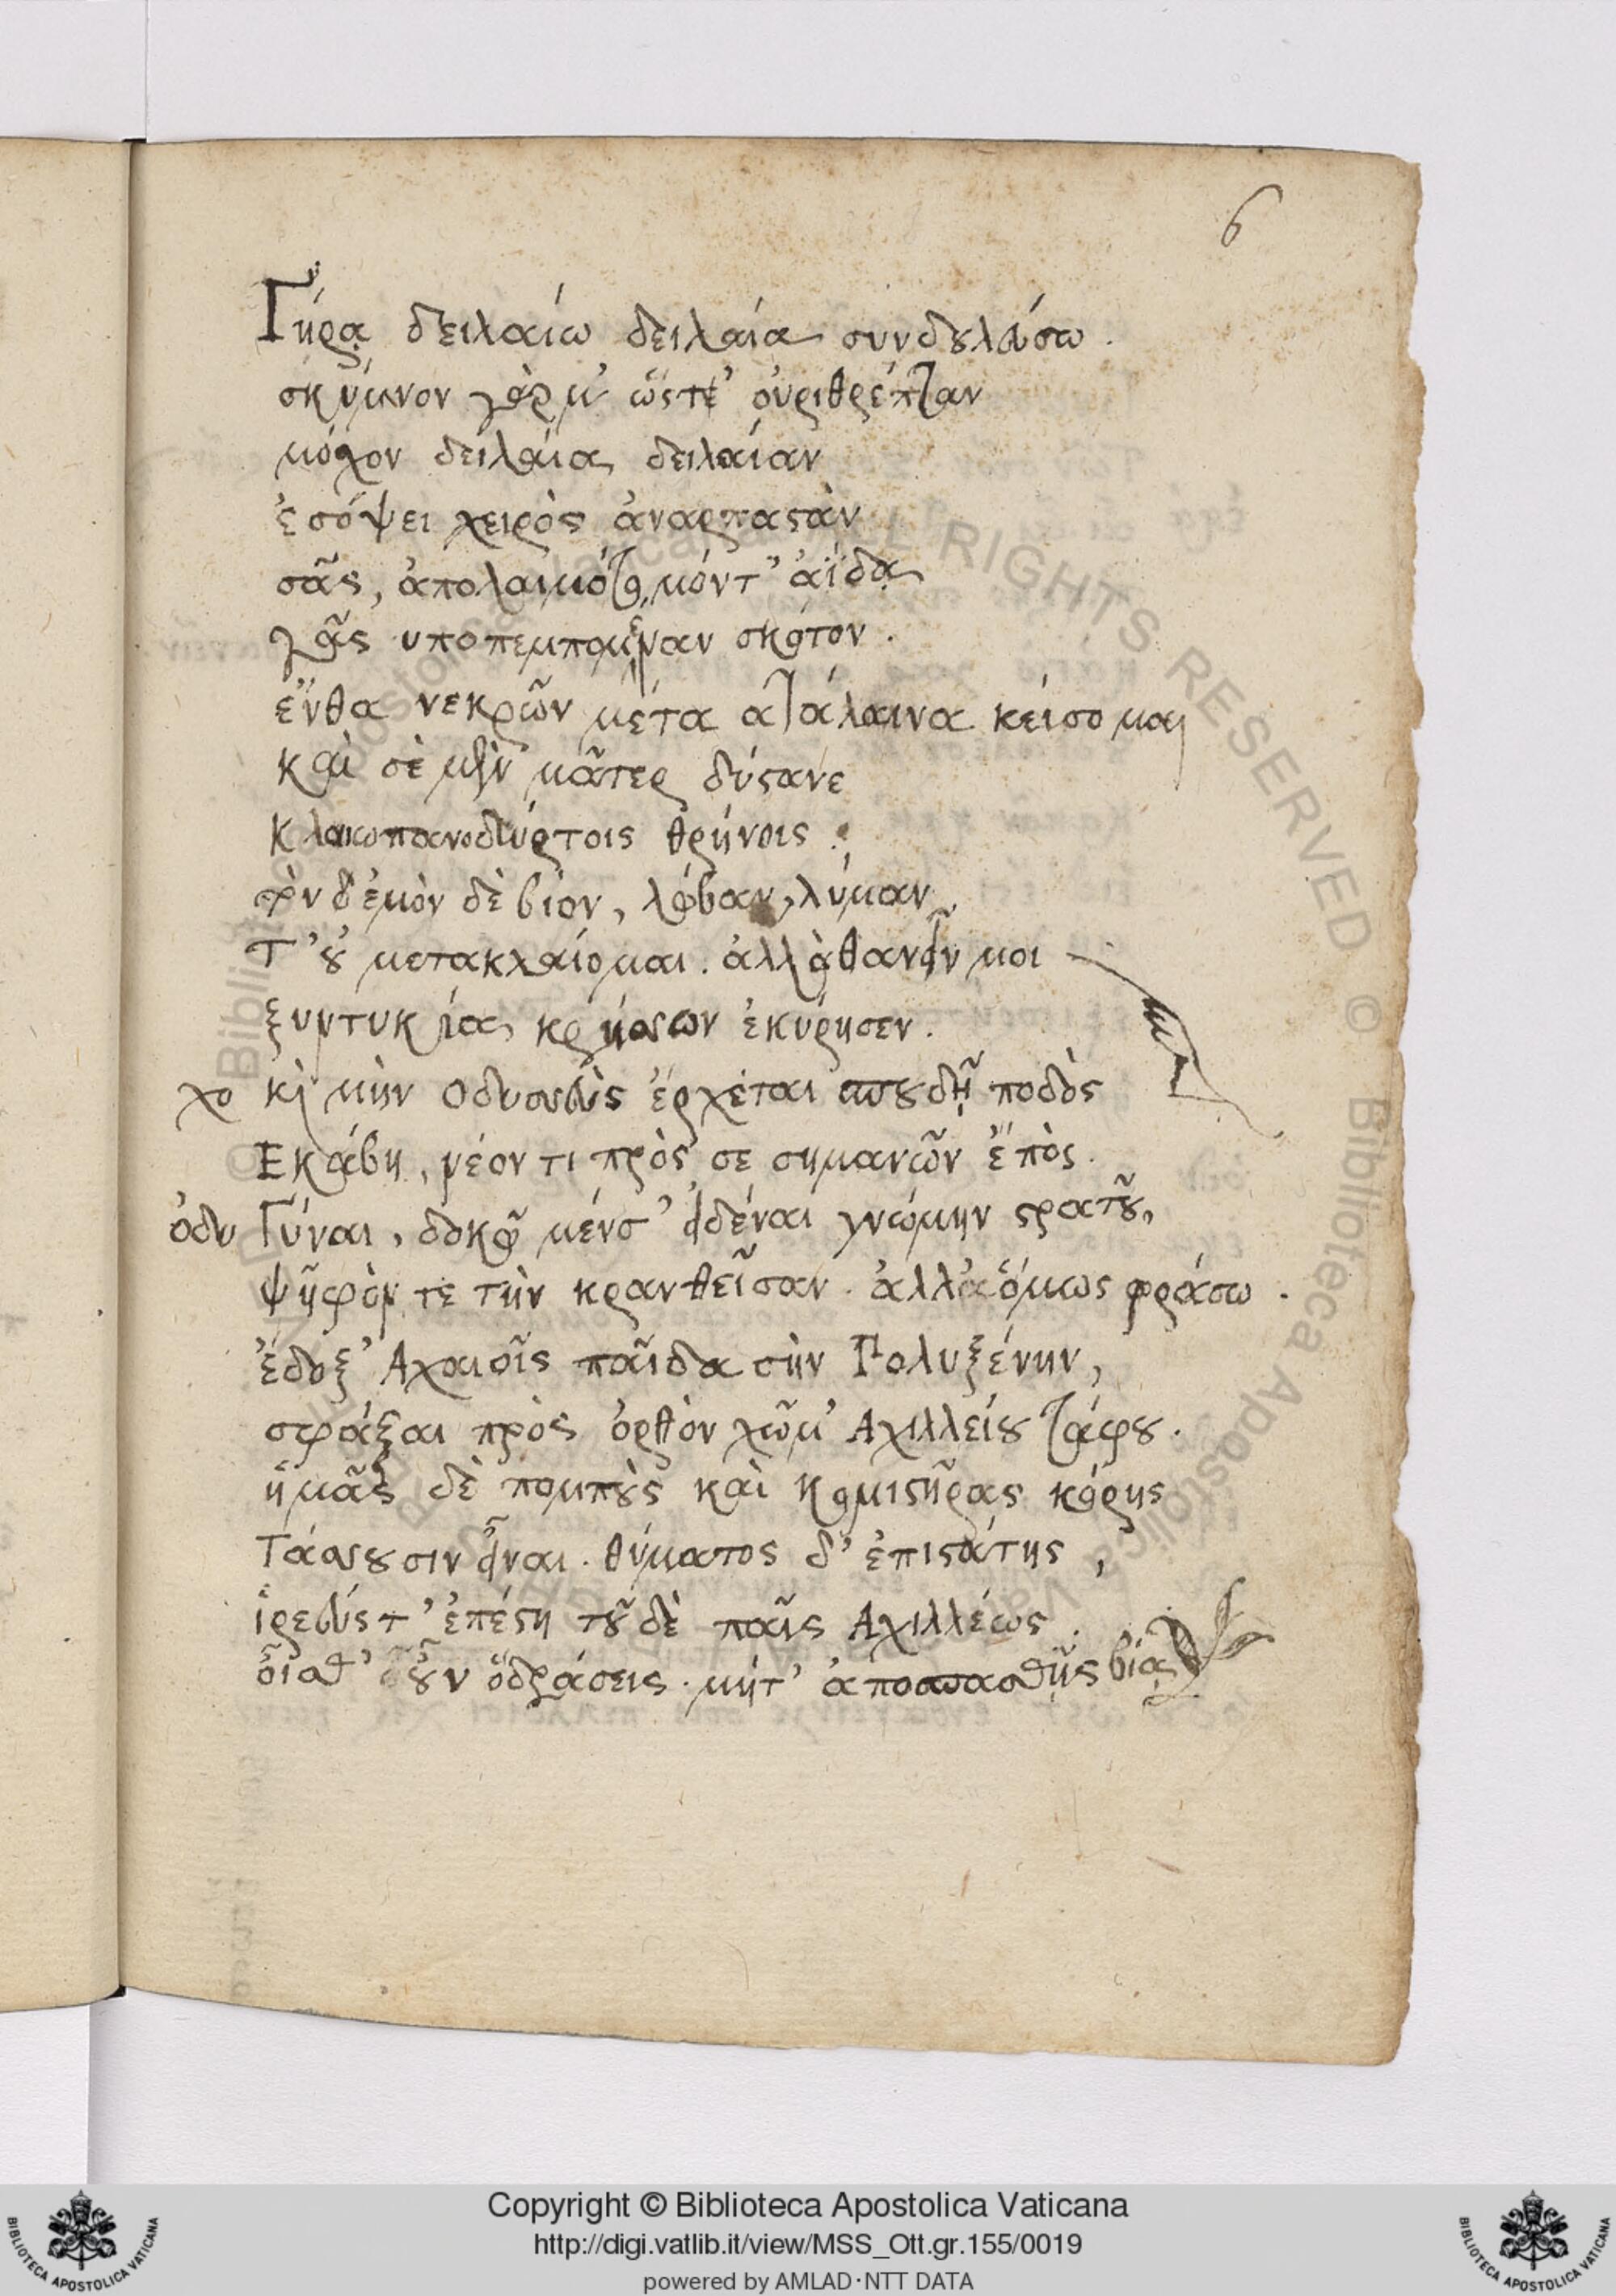 6
Γήρᾳ δειλαίω δειλαία συνδουλεύσω.
σκύμνον γάρ μ' ὥστε' οὐριθρέπταν
μόσχον δειλαία δειλαίαν
ἐσόψει χειρὸς ἀναρπαστὰν
σᾶς, ἀπολαιμότομόν τ' ἀΐδᾳ
γᾶς υποπεμπομέναν σκότον.
ἔνθα νεκρῶν μέτα ατάλαινα κείσομαι
καὶ σὲ μὲν μᾶτερ δύστανε
κλαιωπανοδύρτοις θρήνοις.
τὸν δ'ἐμὸν δὲ βίον, λώβαν, λύμαν
τ' οὐ μετακλαίομαι. ἀλλὰ θανεῖν μοι
ξυντυκλία κρήσσων ἐκύρησεν.
χο καὶ μὴν Οδυσσεὺς ἔρχεται σπουδῇ ποδὸς
Εκάβη, νέον τι πρὸς σε σημανῶν ἔπὸς.
ὀδυ Γύναι, δοκῶ μέν σ' εἰδέναι γνώμην στρατοῦ,
ψῆφόν τε τὴν κρανθεῖσαν. ἀλλ' ὅμως φράσω.
ἔδοξ' Αχαιοῖς παῖδα σὴν Πολυξένην,
σφάξαι πρὸς ὀρθὸν χῶμ' Αχιλλείου τάφου.
ἡμᾶς δὲ πομποὺς καὶ κομιστῆρας κόρης
Τάσσουσιν εἶναι. θύματος δ' ἐπιστάτης,
ἱρεύς τ' ἐπέστη τοῦ δὲ παῖς Αχιλλέως.
οἶσθ' οὖν ὃ δράσεις. μήτ' ἀποσπασθῇς βίᾳ
Copyright © Biblioteca Apostolica Vaticana
http://digi.vatlib.it/view/MSS_Ott.gr.155/0019
powered by AMLAD·NTT DATA